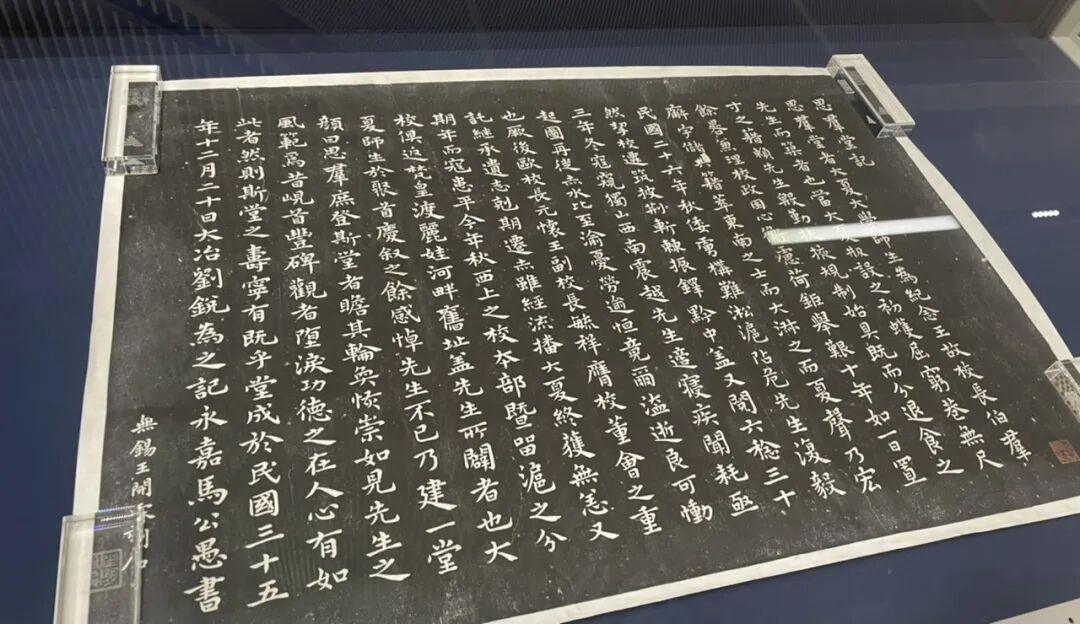 思羣堂記
思羣堂者大夏大學師生為紀念王故校長伯羣
先生而築者也當大夏設之初蠖屈窮巷無尺
寸之藉賴先生殷勤規制始具既而公退食之
餘兼理校政困心慮荷鉅舉艱十年如一日置
宇儲籍萃東南之士而大之而夏聲乃宏
民國二十六年秋倭虜構難淞滬阽危先生毅
然挈校遷筑披荊斬棘振鐸黔中蓋又閱六稔三十
三年冬寇窺獨山西南震越先生適寢疾聞耗亟
起圖再徙赤水比至渝憂勞逾恒竟爾溘逝良可慟
也厥後歐校長元懷王副校長毓祥膺校董會之重
託繼承遺志剋期遷赤雖經流播大夏終獲無恙又
期年而寇患平今年秋西上之校本部暨留滬之分
校俱返梵皇渡麗娃河畔舊址蓋先生所闢者也大
夏師生於聚首慶敘之餘感悼先生不已乃建一堂
顏曰思羣庶登斯堂者瞻其輪奐恢崇如見先生之
風範焉昔峴首豐碑觀者墮淚功德之在人心有如
此者然則斯堂之壽寧有既乎堂成於民國三十五
年十二月二十日大冶劉銳為之記永嘉馬公愚書
無錫王開石